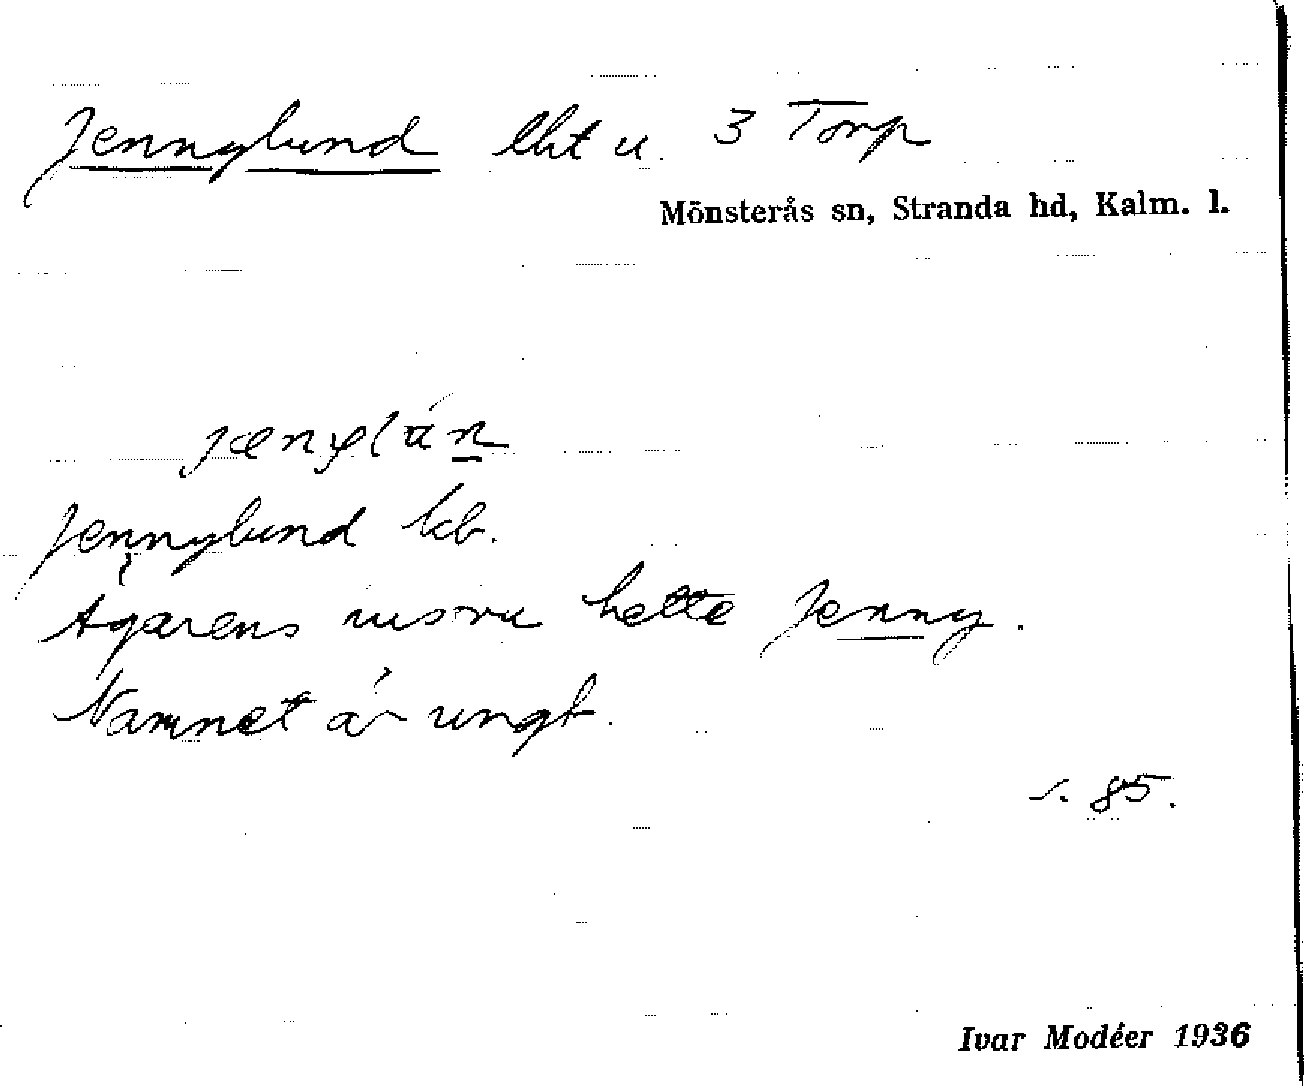 Jennylund lht u. 3 Torp
Mönsterås sn, Stranda hd, Kalm. l.
Jennylund kb.
Ägarens hette Jenny.
Namnet är ungt.
s. 85.
Ivar Modéer 1936